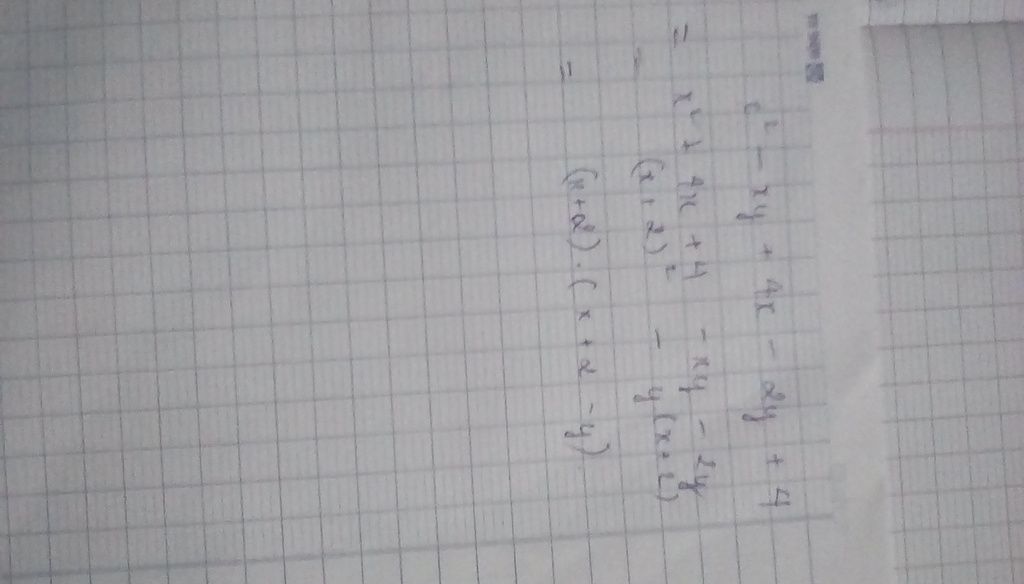 x² - xy + 4x - 2y + 4
= x² + 4x + 4 - xy - 2y
= (x + 2)² - y(x + 2)
= (x+2) · (x + 2 - y)